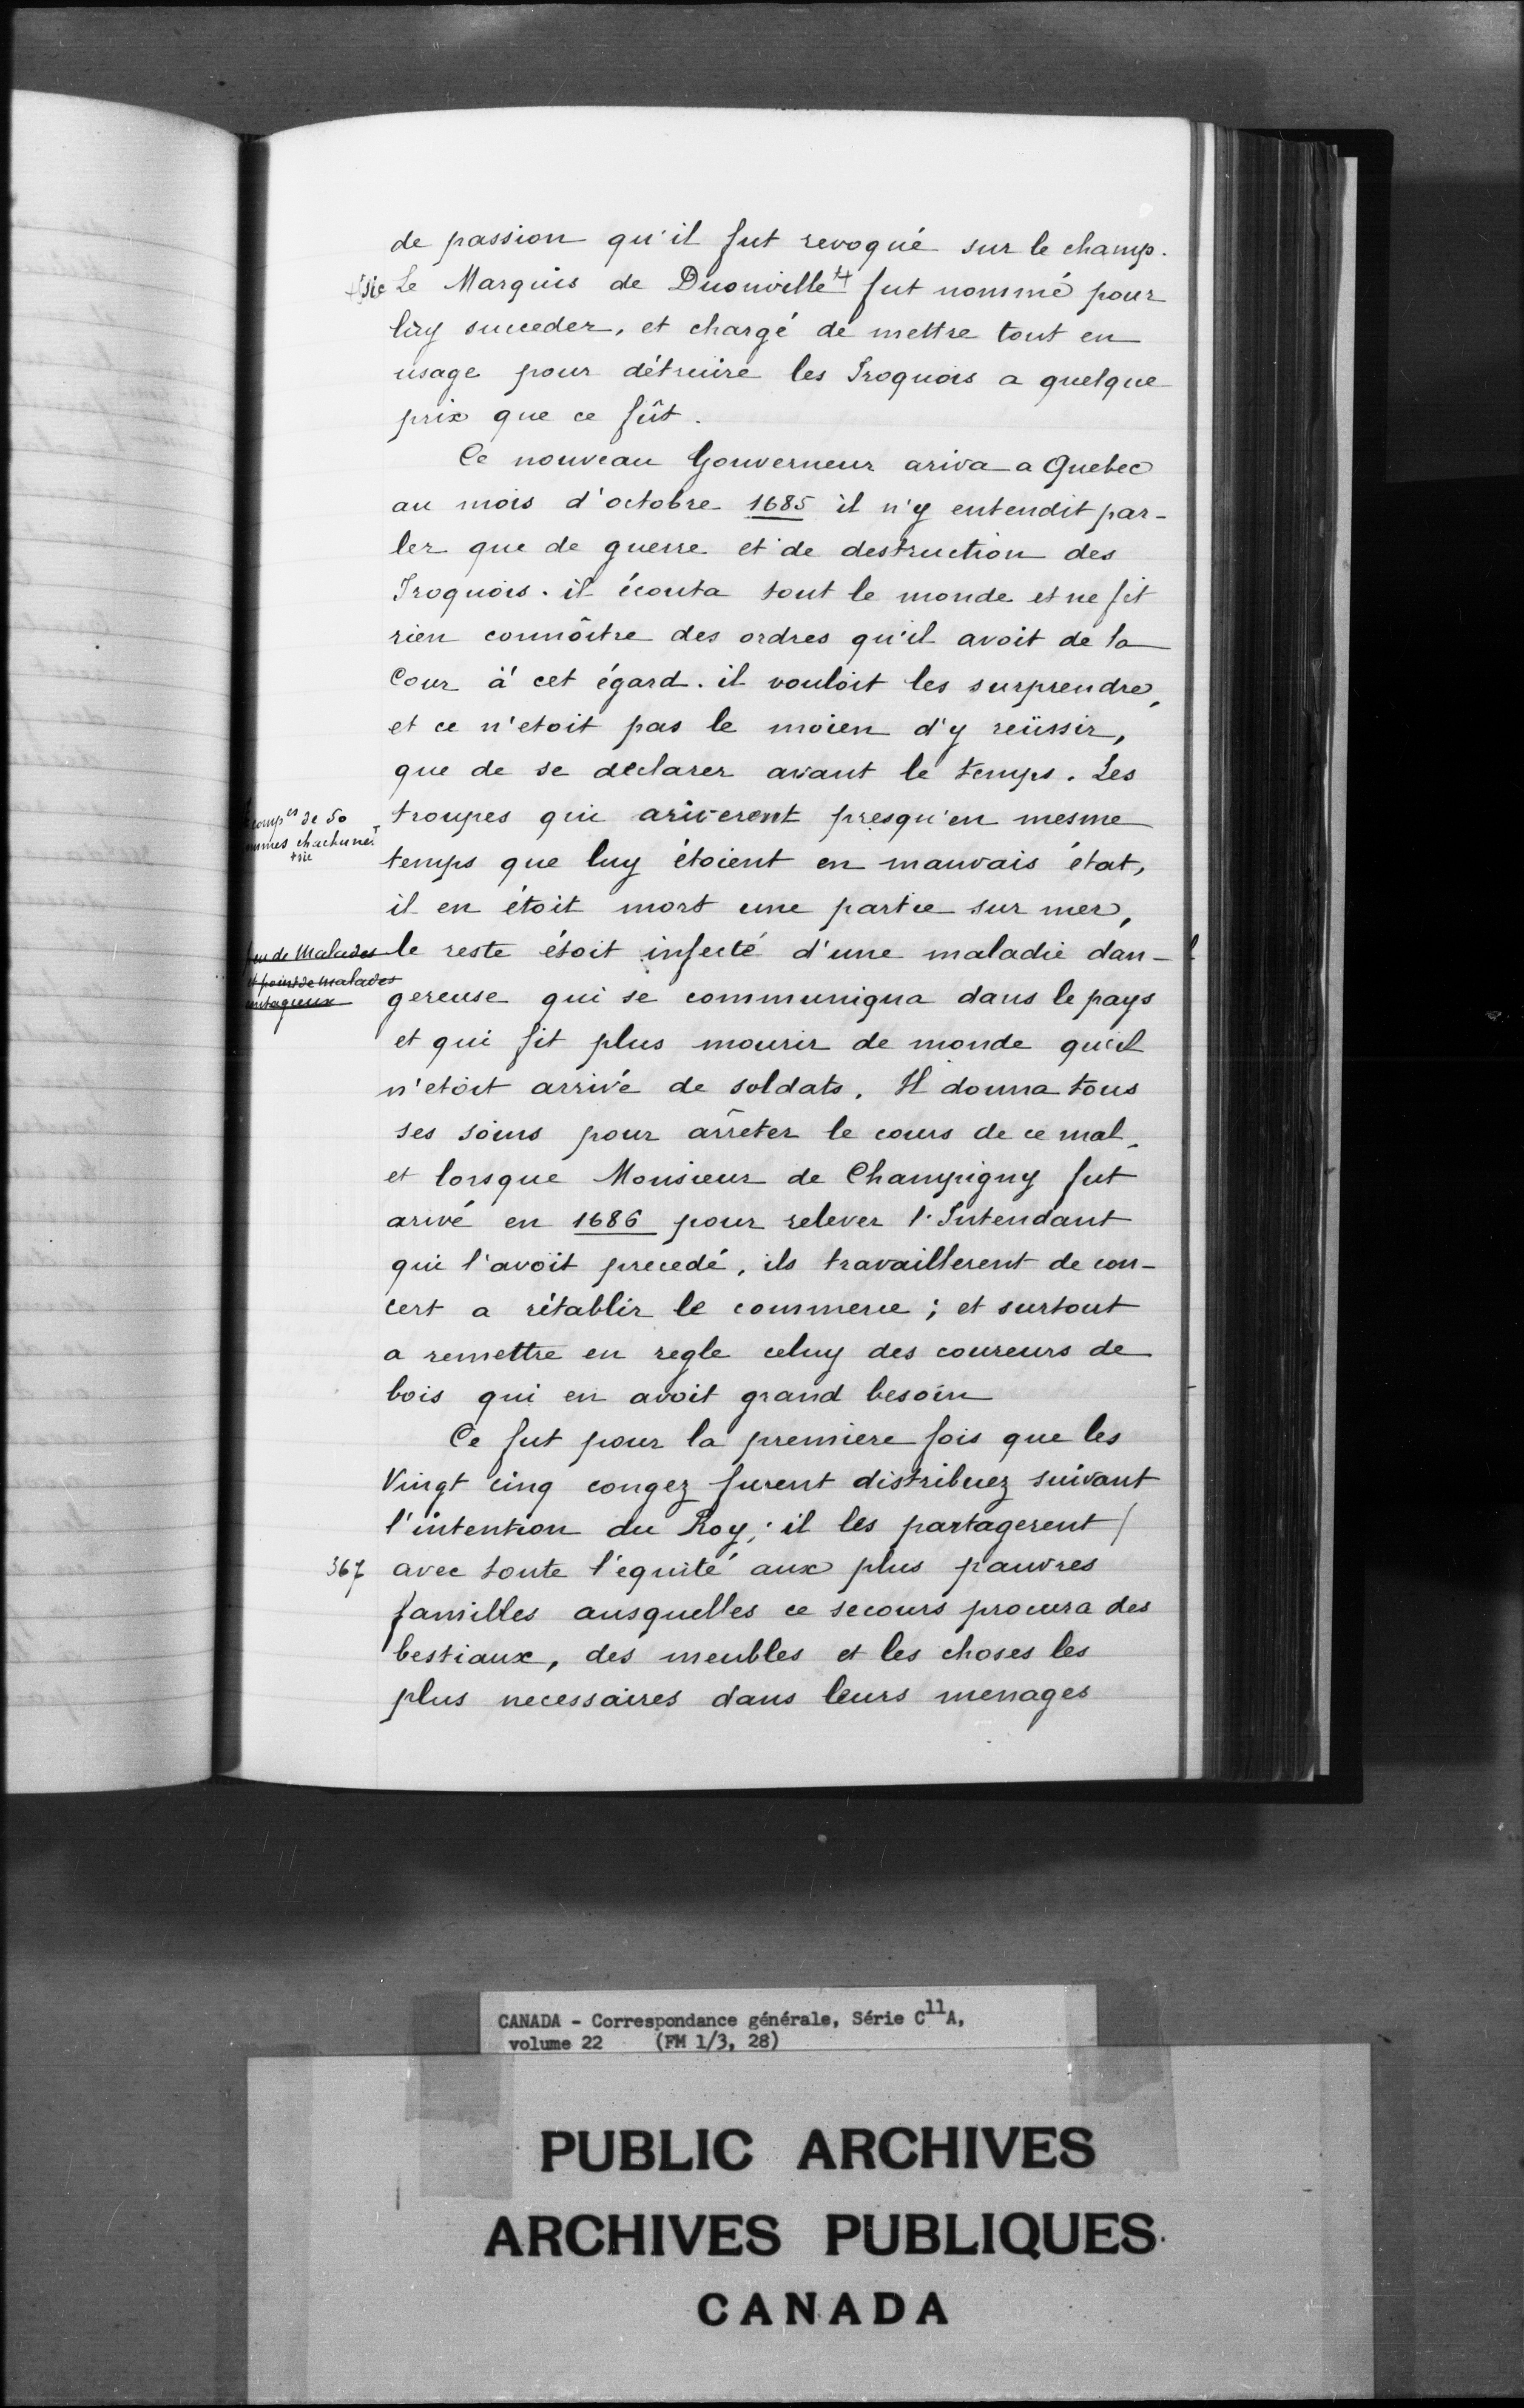 de passion qu'il fut revoqué sur le champ.
+ sic Le Marquis de Duonville + fut nommé pour
luy succeder, et chargé de mettre tout en
usage pour détruire les Iroquois a quelque
prix que ce fût.
Ce nouveau Gouverneur ariva a Quebec
au mois d'octobre 1685 il n'y entendit par-
ler que de guerre et de destruction des
Iroquois. il écouta tout le monde et ne fit
rien connôitre des ordres qu'il avoit de la
Cour à cet égard. il vouloit les surprendre,
et ce n'etoit pas le moien d'y reüssir,
que de se declarer avant le temps. Les
comp.es de 50
chachune +
+ sic
troupes qui ariverent presqu'en mesme
temps que luy étoient en mauvais état,
il en étoit mort une partie sur mer,
de Malades
et point de malades
le reste étoit infecté d'une maladie dan-
gereuse qui se communiqua dans le pays
et qui fit plus mourir de monde qu'il
n'etoit arrivé de soldats. Il donna tous
ses soins pour arrêter le cours de ce mal,
et lorsque Monsieur de Champigny fut
arivé en 1686 pour relever l'Intendant
qui l'avoit precedé, ils travaillerent de con-
cert a rétablir le commerce ; et surtout
a remettre en regle celuy des coureurs de
bois qui en avoit grand besoin
Ce fut pour la premiere fois que les
Vingt cinq congez furent distribuez suivant
l'intention du Roy; il les partagerent /
367 avec toute l'équité aux plus pauvres
familles ausquelles ce secours procura des
bestiaux, des meubles et les choses les
plus necessaires dans leurs menages
CANADA - Correspondance générale, Série C11A,
volume 22 (FM 1/3, 28)
PUBLIC ARCHIVES
ARCHIVES PUBLIQUES
CANADA